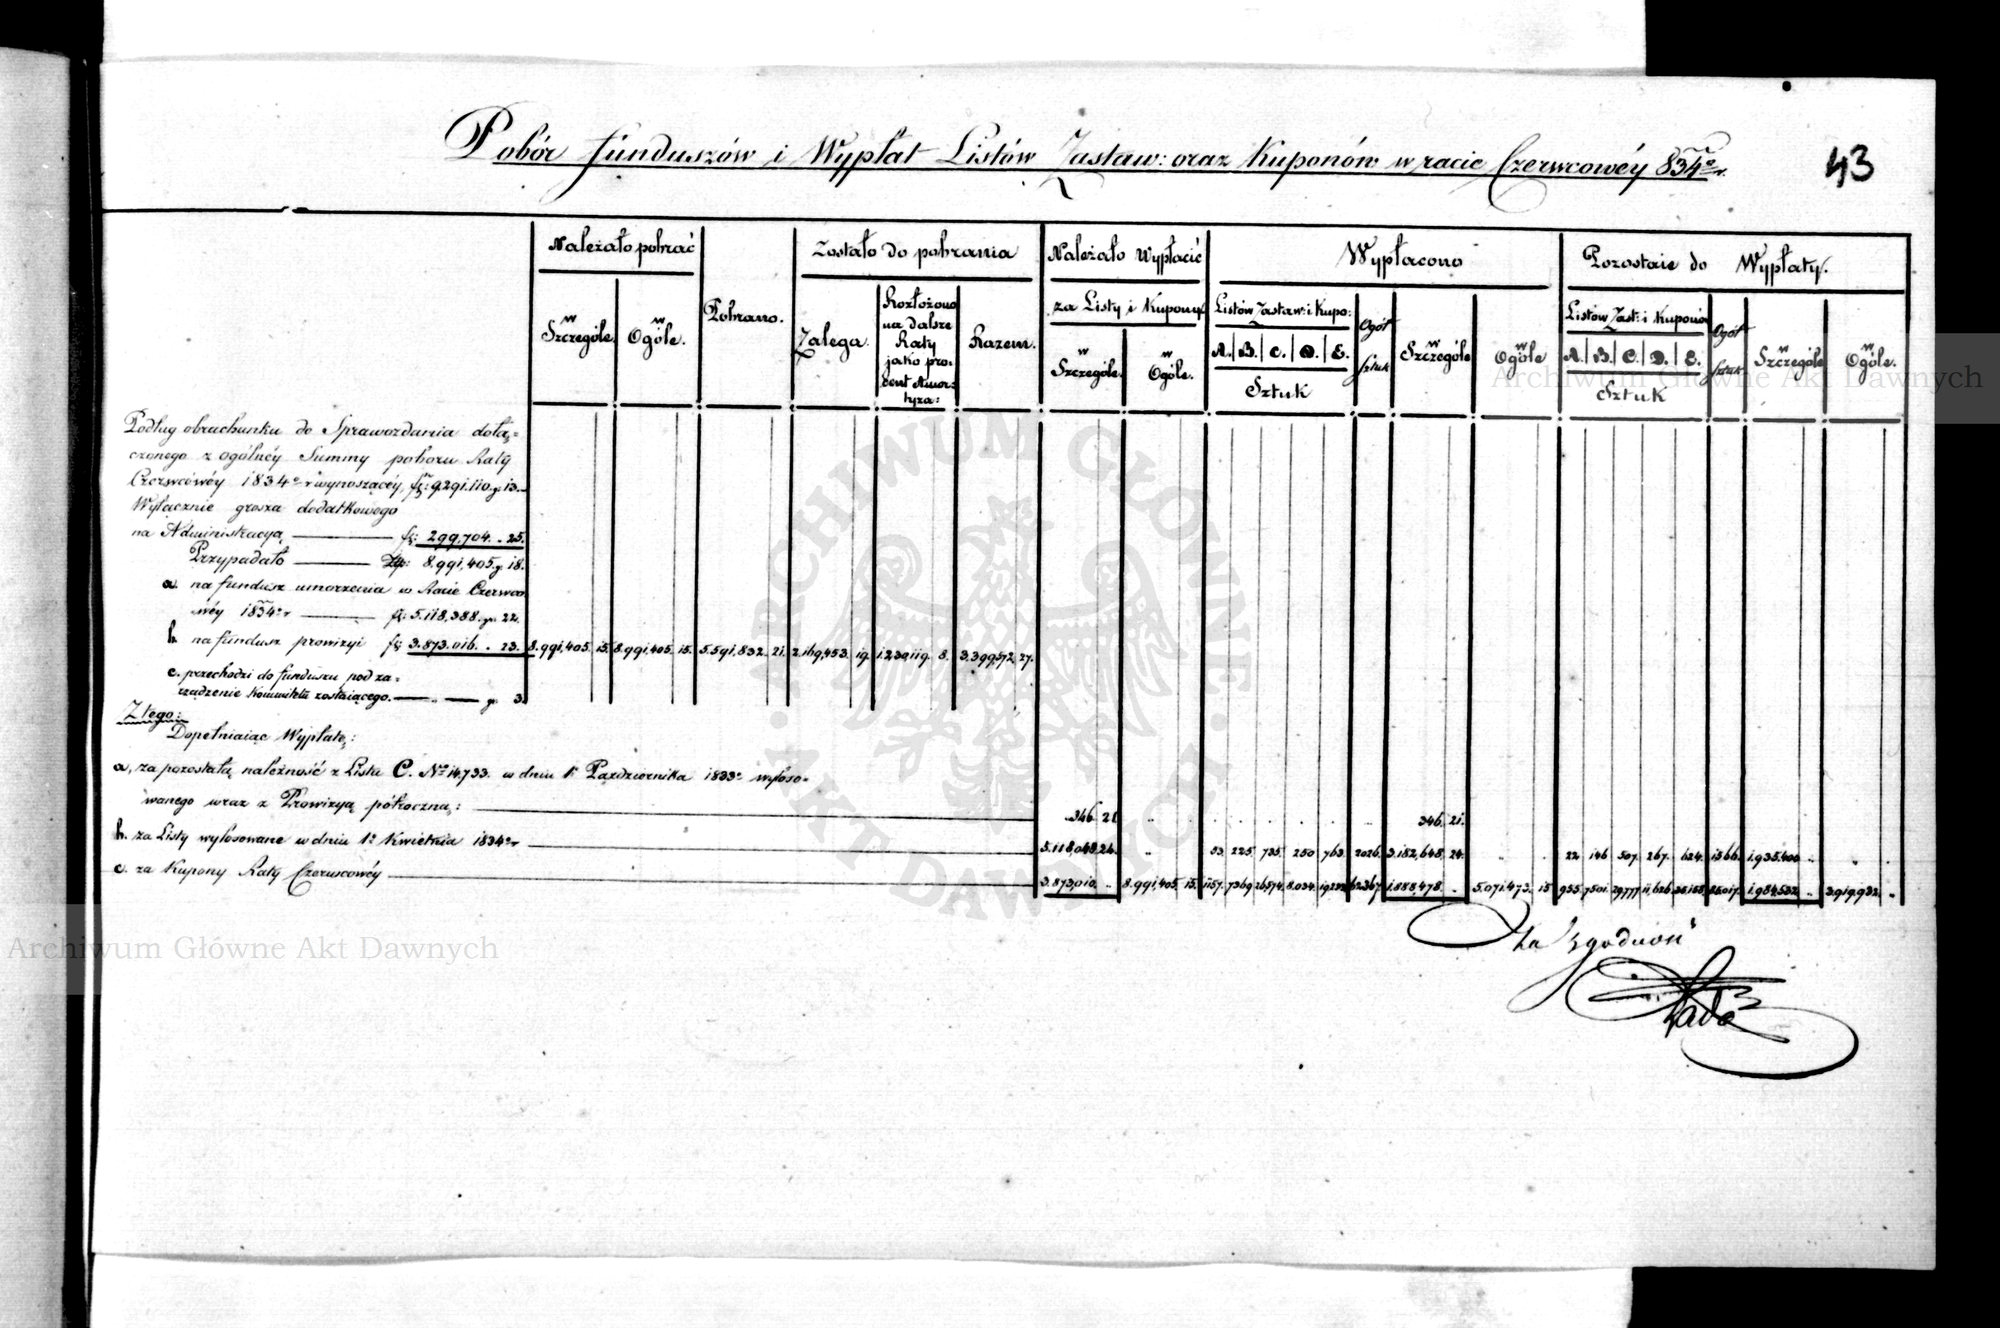 Pobór funduszów i Wypłat Listów Zastaw: oraz Kuponów w racie Czerwcowéy 834º r.
43
Należało pobrać
Pobrano.
Zostało do pobrania
Należało Wypłacić
Wypłacono
Pozostaie do Wypłaty.
w Szczególe
w Ogóle.
Zalega.
Rozłożono na dalsze Raty jako procent Amortyza:
Razem.
za Listy i Kupony
w Szczególe.
w Ogóle.
Listów Zastaw: i Kupo:
A. B. C. D. E.
Sztuk
Ogół sztuk
w Szczególe
w Ogóle
Listów Zast: i Kuponów
A. B. C. D. E.
Sztuk
Ogół sztuk
w Szczególe
w Ogóle.
Podług obrachunku do Sprawozdania dołą=
czonego z ogólnéy Summy poboru Raty
Czerwcowéy 1834º r wynoszącéy, fz: 9.291.110. g. 13.
Wyłącznie grosza dodatkowego
na Administracyą fz: 299,704. - 25.
Przypadało Złp: 8.991,405. g. 18.
a. na fundusz umorzenia w Racie Czerwco
wéy 1834º r fz: 5.118,388. gr. 22.
b. na fundusz prowizyi fz: 3.873.016. - 23. 8.991,405. 15. 8.991,405. 15. 5.591,832. 21. 2.169,453. 19. 1.230,119. 8. 3.399,572. 27.
c. przechodzi do funduszu pod za=
rządzenie Kommitetu zostaiącego. g. 3.
Z tego:
Dopełniaiąc Wypłatę:
a, za pozostałą należność z Listu C. Nº 14,733. w dniu 1º Października 1833º wyloso=
wanego wraz z Prowizyą półroczną: 346 21 346. 21.
b. za Listy wylosowane w dniu 1º Kwietnia 1834º r 5.118,048. 24. 53. 225. 735. 250 763. 2026. 3.182,648. 24. 22. 146 507. 267. 624. 1566. 1.935,400
c. za Kupony Raty Czerwcowéy 3.873,010. 8.991,405. 15. 1157. 7369. 26,574. 8.034. 19,232 62367. 1.888,478. 5.071,473. 15 955. 7501. 29,777. 11,626. 1.984,532 3.919,932.
Za Zgodność
Archiwum Główne Akt Dawnych
Archiwum Główne Akt Dawnych
ARCHIWUM GŁÓWNE
AKT DAWNYCH